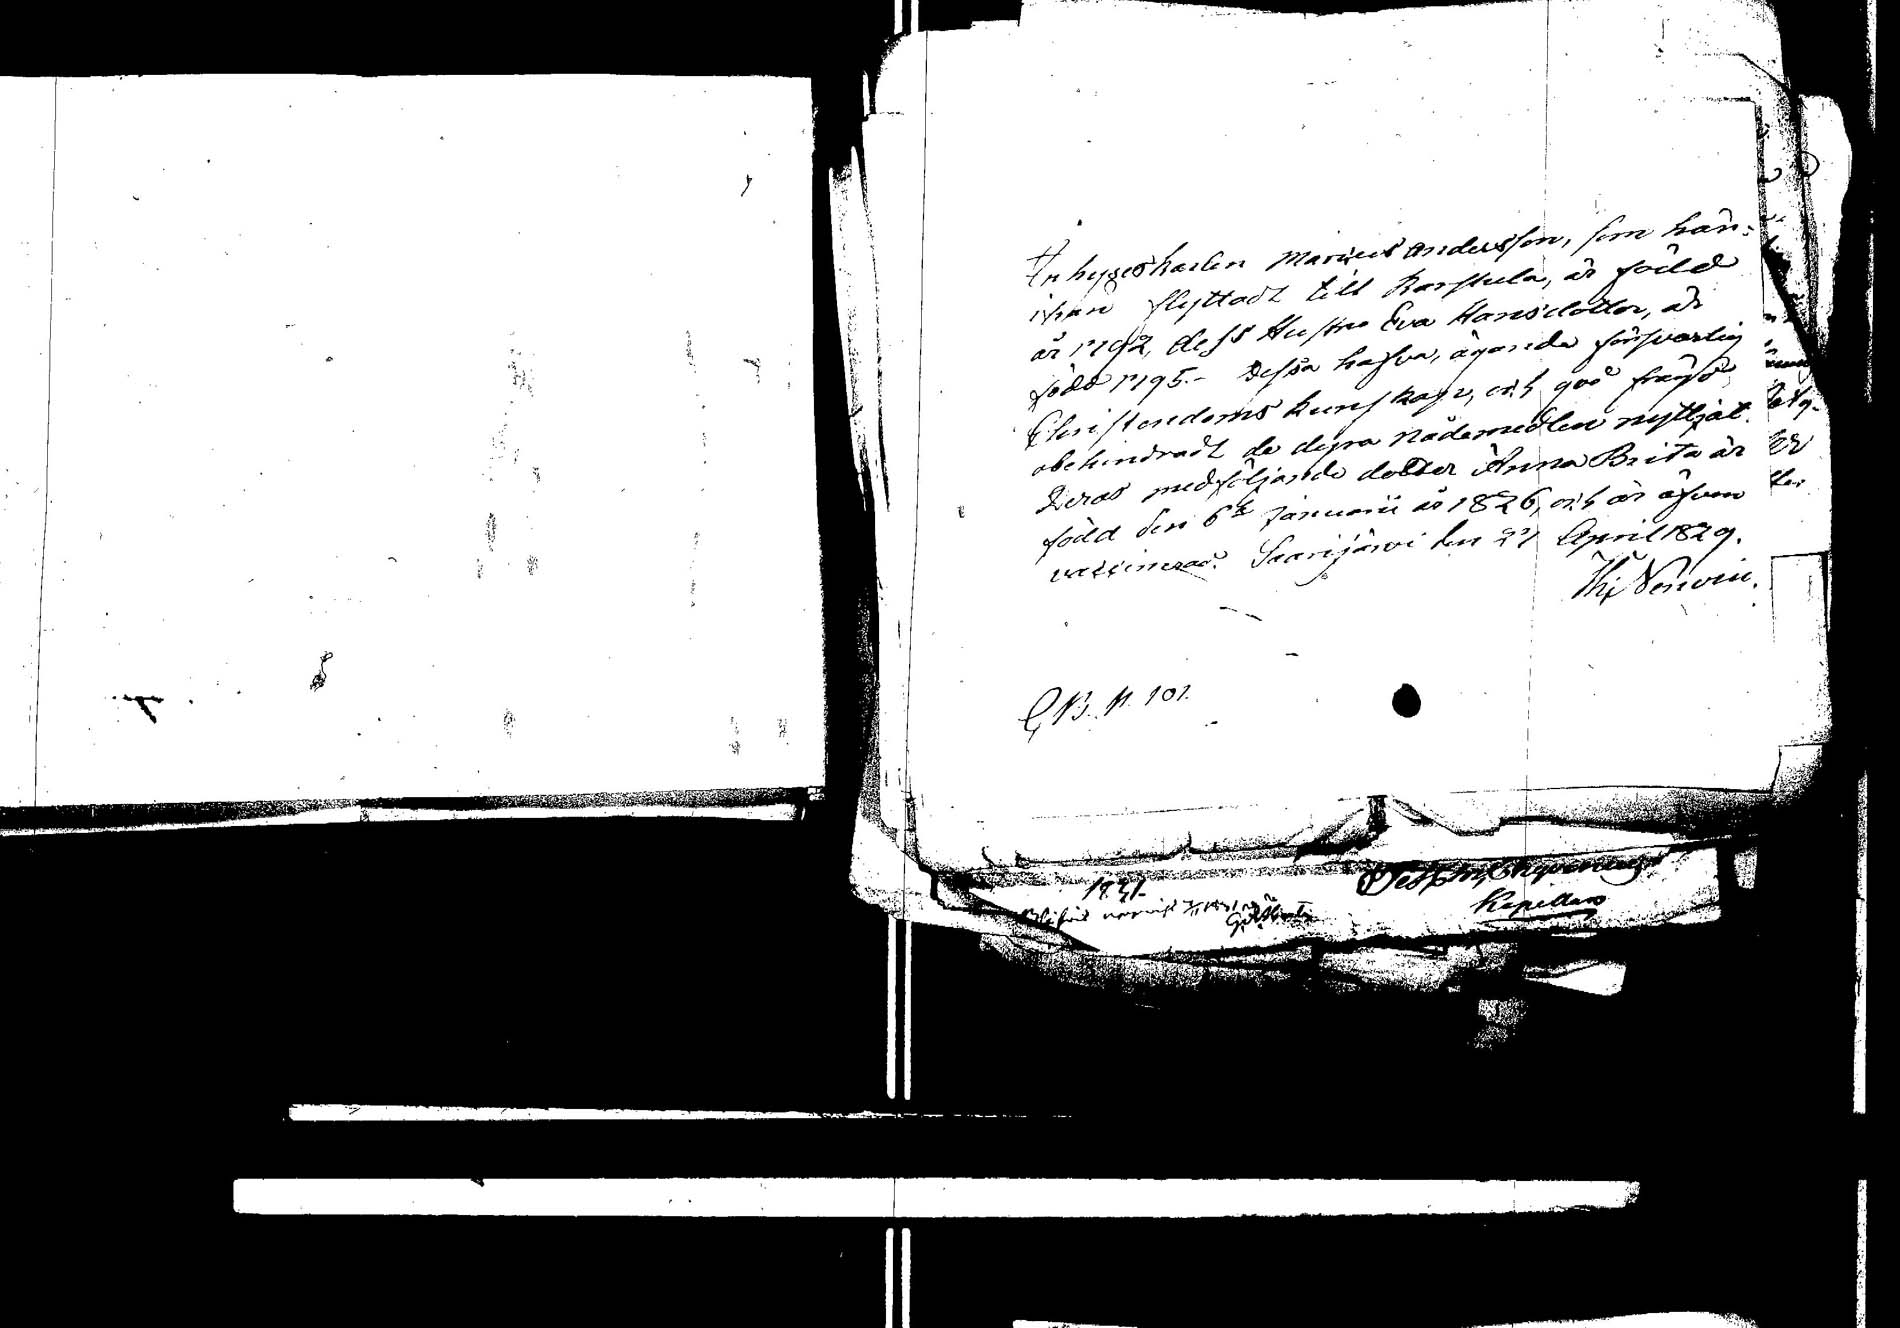 Inhyseskarlen Marcus Andersson, som här=
ifrån flyttadt till Karstula, är född
år 1792, dess Hustru Eva Hansdotter, är
född 1795.- Dessa hafva, ägande försvarlig
Christendoms kunskap, och god frägd,
obehindradt de dyra nådemedlen nyttjat.
Deras medföljande dotter Anna Brita är
född den 6te Januarii år 1826, och är äfven
vaccinerad. Saarijärvi den 27 April 1829.
C, B. N. 101.
Kapellan